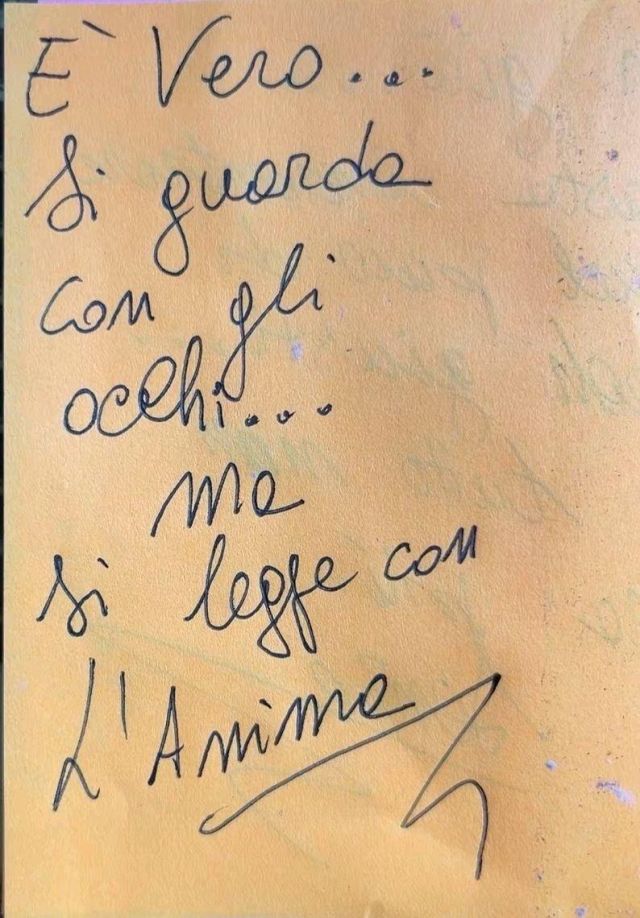 È Vero...
Si guarda
con gli
occhi...
ma
si legge con
L'Anima